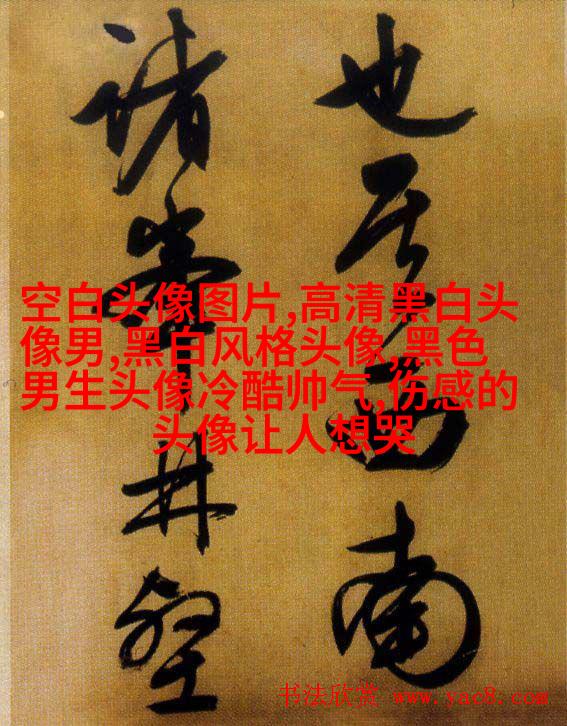 也其西南
諸峯林壑
空白头像图片,高清黑白头
像男,黑白风格头像,黑色
男生头像冷酷帅气,伤感的
头像让人想哭
书法欣赏 www.yac8.com